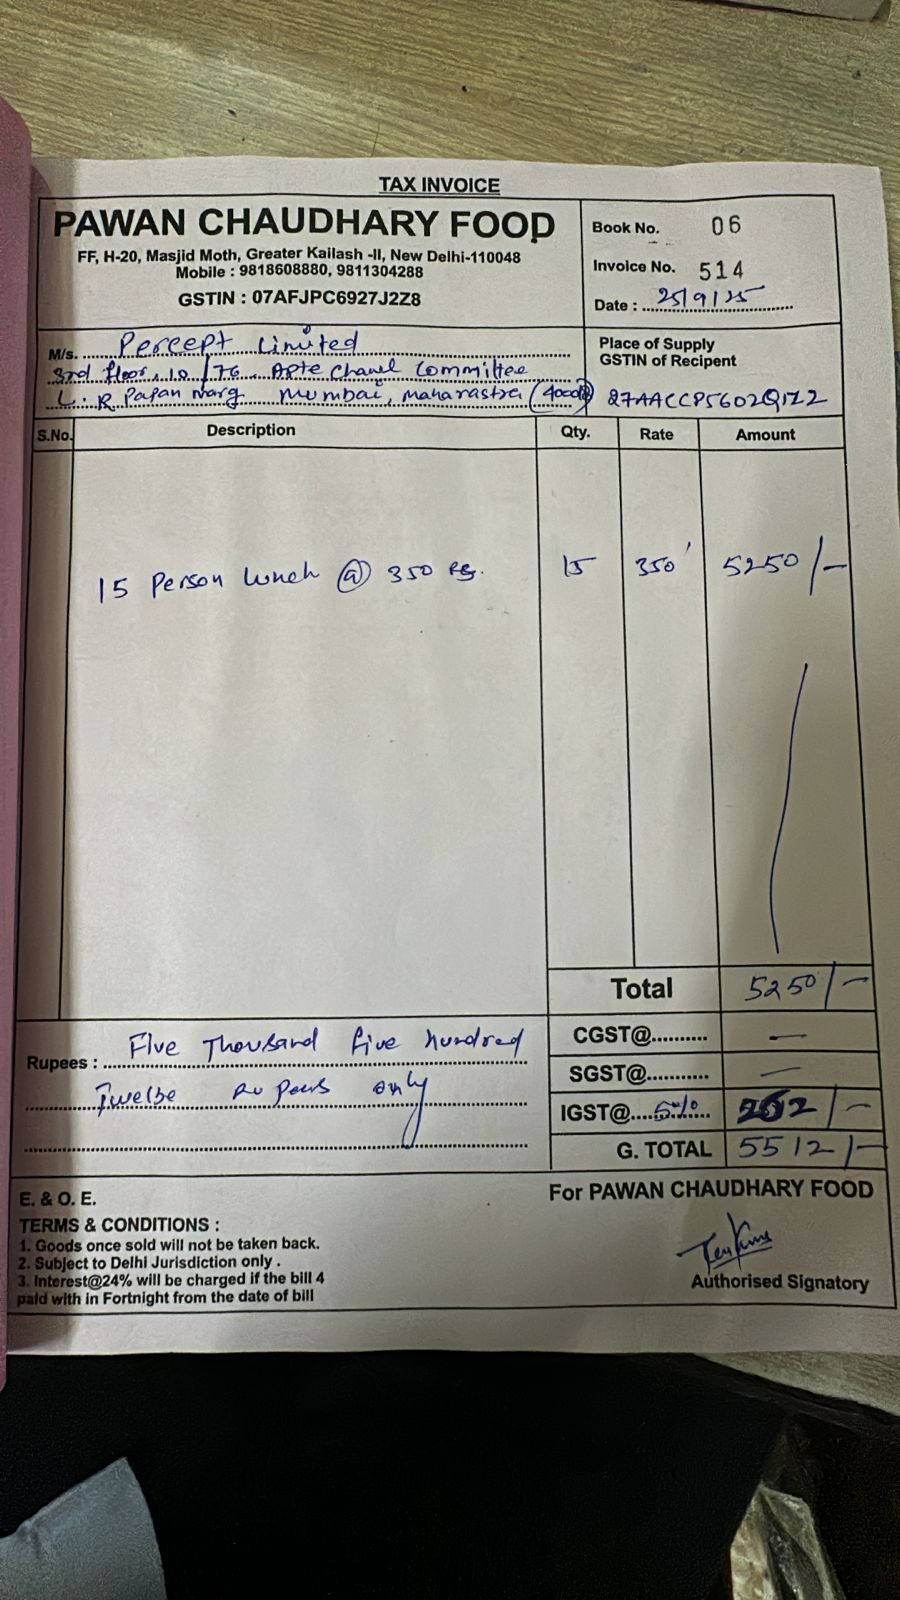 TAX INVOICE
PAWAN CHAUDHARY FOOD
FF, H-20, Masjid Moth, Greater Kailash -II, New Delhi-110048
Mobile : 9818608880, 9811304288
GSTIN : 07AFJPC6927J2Z8
Book No. 06
Invoice No. 514
Date : 25/9/25
M/s. Percept Limited
3rd floor, 10/76, Apte Chawl Committee
L. R Papan marg Mumbai, Maharastra
Place of Supply
GSTIN of Recipent
27AACCP5602Q1Z2
S.No. Description Qty. Rate Amount
15 Person lunch @ 350 Rs. 15 350 5250/-
Total 5250/-
Rupees : Five Thousand five hundred
Twelbe Rupees only
CGST@.......... —
SGST@........... —
IGST@ 5% 262/-
G. TOTAL 5512/-
E. & O. E.
For PAWAN CHAUDHARY FOOD
TERMS & CONDITIONS :
1. Goods once sold will not be taken back.
2. Subject to Delhi Jurisdiction only .
3. Interest@24% will be charged if the bill 4
paid with in Fortnight from the date of bill
Authorised Signatory